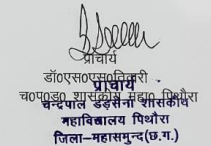 प्राचार्य
डॉ0एस0एस0तिवारी
च0प0ड0 शासकीय महा0 पिथौरा
प्राचार्य
चन्द्रपाल डड़सेना शासकीय
महाविद्यालय पिथौरा
जिला-महासमुन्द(छ.ग.)